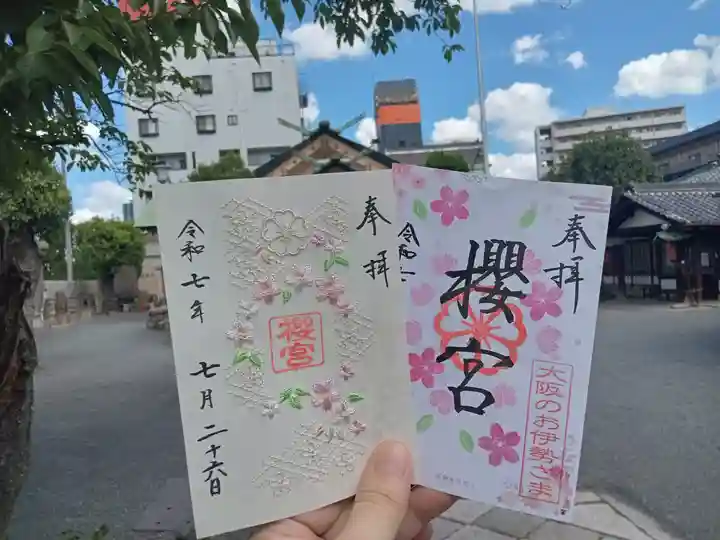 奉拝
櫻宮
令和七年
七月二十六日
奉拝
櫻宮
令和
大阪のお伊勢さま